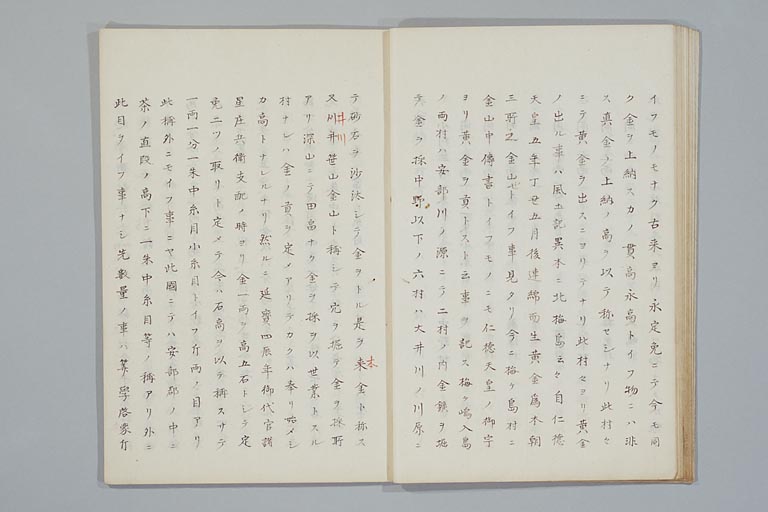 イフモノモナク古来ヨリ永定免ニテ今モ同
ク金ヲ上納スカノ貫高永高トイフ物ニハ非
ス真金ヲ上納ノ高ヲ以テ称セシナリ此村々
ニテ黄金ヲ出スニヨリテナリ此村々ヨリ黄金
ノ出ル事ハ風土記異本ニ北梅島云々自仁徳
天皇五年丁丑五月後連綿而生黄金為本朝
三所之金山ナトイフ事見タリ今ニ梅ケ島村ニ
金山中傳書トイフモノニモ仁徳天皇ノ御宇
ヨリ黄金ヲ貢トスト云事ヲ記ス梅ケ嶋入島
ノ両村ハ安部川ノ源ニテ二村ノ内金鑛ヲ堀
テ金ヲ採中野以下ノ六村ハ大井川ノ川原ニ
テ砂石ヲ沙汰シテ金ヲトル是ヲ来金ト称ス
本
又川井笹山金山ト稱シテ穴ヲ堀テ金ヲ採所
井川
アリ深山ニテ田畠ナク金ヲ採ヲ以世業トスル
村ナレハ金ノ貢ヲ定メアリテカクハ奉リ始メシ
カ高トナレルナリ然ルニ延寶四辰年御代官諸
星庄兵衛支配ノ時ヨリ金一両ヲ高五石トシテ定
免ニツノ取リト定メテ今ハ石高ヲ以テ稱スサテ
一両一分一朱中糸目小糸目トイフ斤両ノ目アリ
此稱外ニモイフ事ニヤ此國ニテハ安部郡ノ中ニ
茶ノ直段ノ高下ニ一朱中糸目等ノ稱アリ外ニ
此目ヲイフ事ナシ先数量ノ事ハ算学啓蒙有